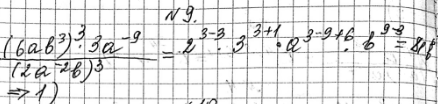 №9.
(6ab³)³ · 3a⁻⁹ / (2a⁻²b)³ = 2³⁻³ · 3³⁺¹ · a³⁻⁹⁺⁶ · b⁹⁻³ =
⇒ 1)